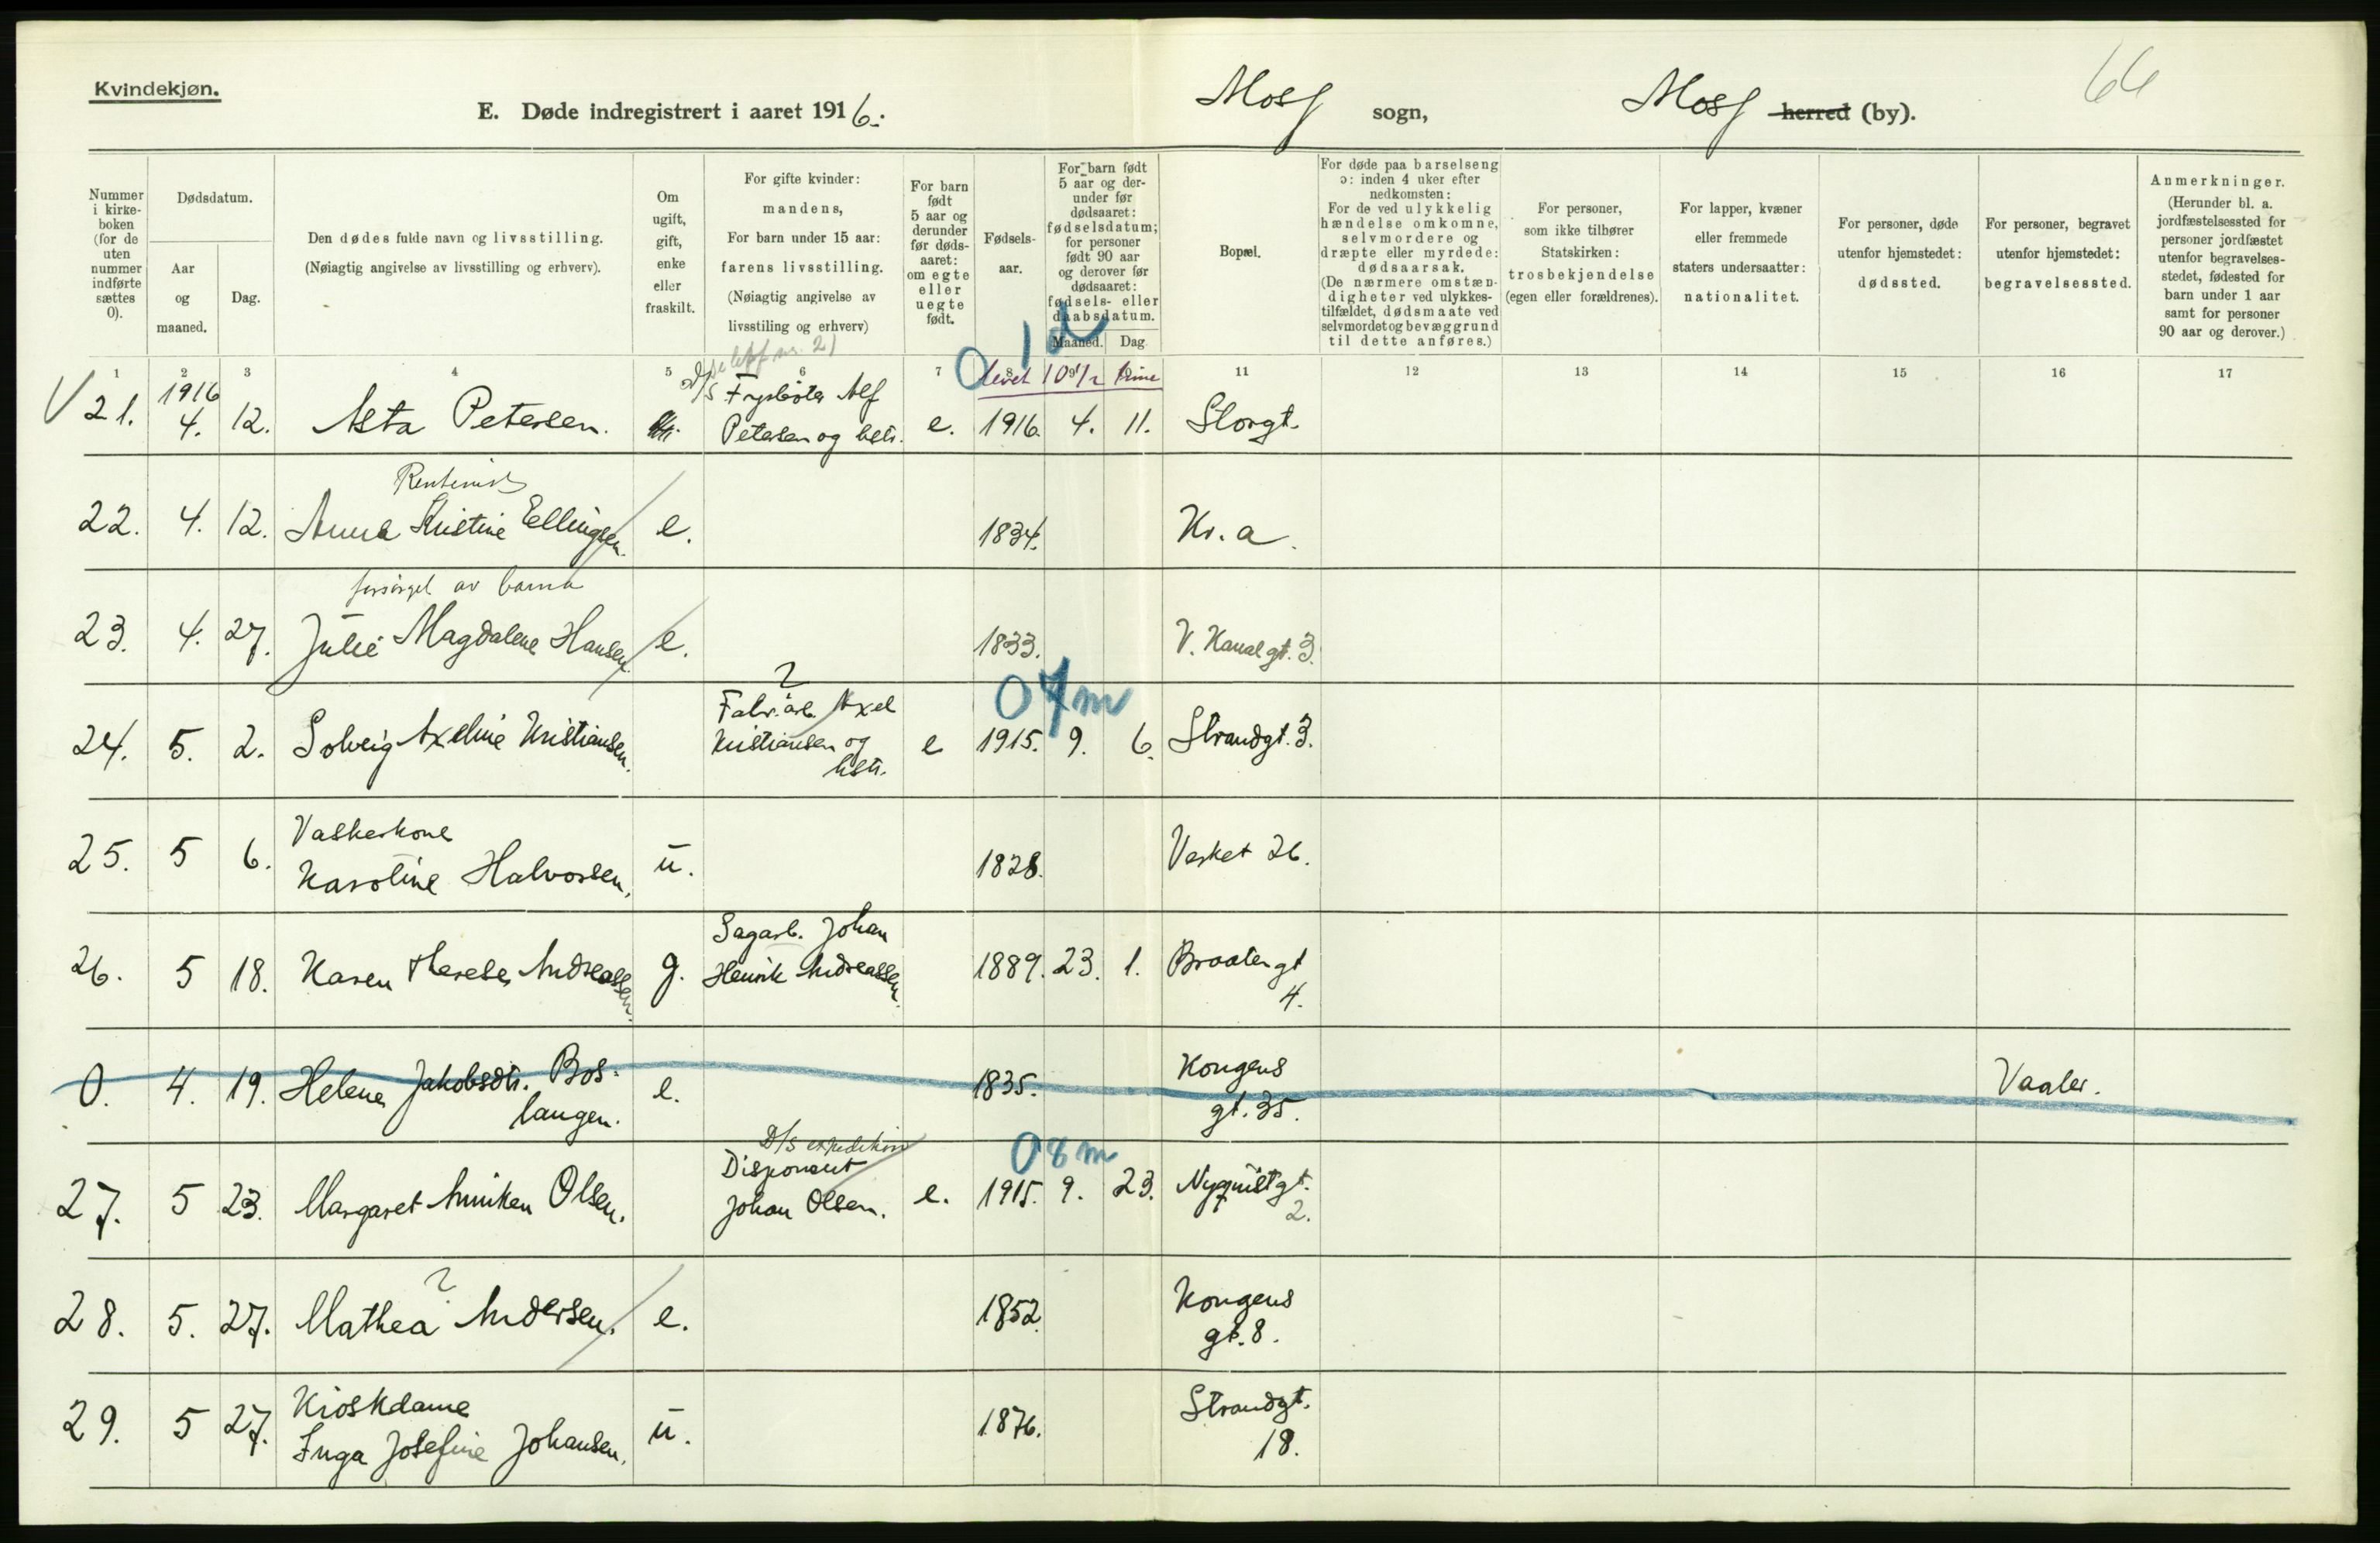 Kvindekjøn.
E. Døde indregistrert i aaret 1916.
Moss sogn,
Moss herred (by).
66
Nummer i kirke-boken (for de uten nummer indførte sættes 0).
Dødsdatum.
Aar og maaned.
Dag.
Den dødes fulde navn og livsstilling.
(Nøiagtig angivelse av livsstilling og erhverv).
Om ugift, gift, enke eller fraskilt.
For gifte kvinder: mandens,
For barn under 15 aar: farens livsstilling.
(Nøiagtig angivelse av livsstiling og erhverv)
For barn født 5 aar og derunder før døds-aaret: om egte eller uegte født.
Fødsels-aar.
For barn født 5 aar og der-under før dødsaaret: fødselsdatum; for personer født 90 aar og derover før dødsaaret: fødsels- eller daabsdatum.
Maaned. Dag
Bopæl.
For døde paa barselseng ɔ: inden 4 uker efter nedkomsten:
For de ved ulykkelig hændelse omkomne, selvmordere og dræpte eller myrdede: dødsaarsak.
(De nærmere omstæn-digheter ved ulykkes-tilfældet, dødsmaate ved selvmordet og bevæggrund til dette anføres.)
For personer, som ikke tilhører Statskirken: trosbekjendelse (egen eller forældrenes).
For lapper, kvæner eller fremmede staters undersaatter: nationalitet.
For personer, døde utenfor hjemstedet: dødssted.
For personer, begravet utenfor hjemstedet: begravelsessted.
Anmerkninger.
(Herunder bl. a. jordfæstelsessted for personer jordfæstet utenfor begravelses-stedet, fødested for barn under 1 aar samt for personer 90 aar og derover.)
1 2 3 4 5 6 7 8 9 10 11 12 13 14 15 16 17
0 1 d
levet 10 1/2 time
21. 1916 4. 12. Asta Petersen. D/S Fyrbøter Alf Petersen og hstr. e. 1916. 4. 11. Storgt.
Rentenist
22. 4. 12. Anna Kristine Ellingsen. e. 1834. Kr.a.
forsørget av barna
23. 4. 27. Julie Magdalene Hansen. e. 1833. V. Kanalgt. 3.
? 0 7 m
24. 5. 2. Solveig Axeline Kristiansen. Fabr.arb. Axel Kristiansen og hstr. e 1915. 9. 6. Strandgt. 3.
Vaskerkone
25. 5 6. Karoline Halvorsen. u. 1828. Verket 26.
26. 5 18. Karen Therese Andreassen. g. Sagarb. Johan Henrik Andreassen. 1889. 23. 1. Braatengt 4.
0. 4. 19. Helene Jakobsdtr. Bos-langen. e. 1835. Kongens gt. 35. Vaaler.
D/S expedition 0 8 m
27. 5 23. Margaret Anniken Olsen. Disponent Johan Olsen. e. 1915. 9. 23. Nyquistgt. 2.
?
28. 5. 27. Mathea Andersen. e. 1852. Kongens gt. 8.
Kioskdame
29. 5 27. Inga Josefine Johansen. u. 1876. Strandgt. 18.